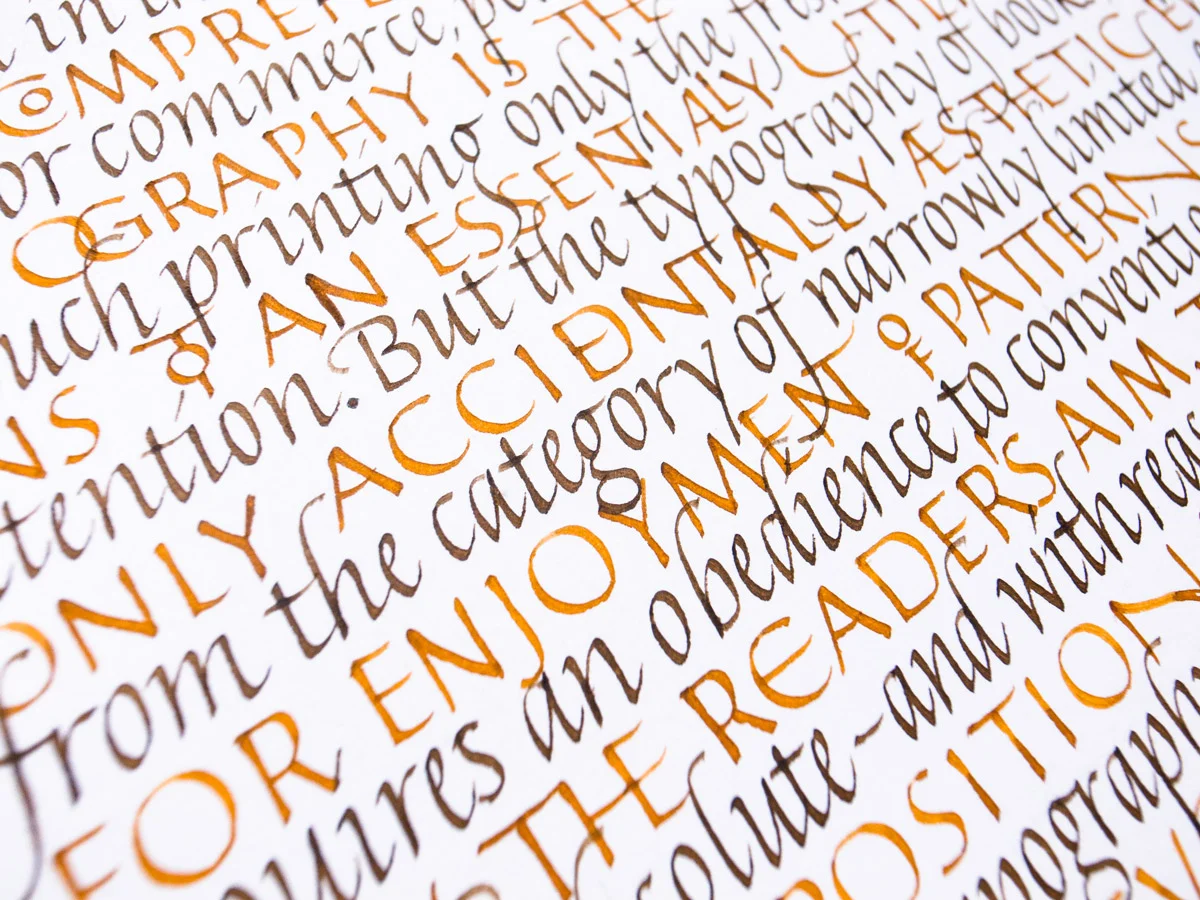 in th
COMPREHE
or commerce, p
OGRAPHY IS THE
uch printing only the fres
NS TO AN ESSENTIALLY UTI
ttention. But the typography of book
ONLY ACCIDENTALLY ÆSTHETIC E
from the category of narrowly limited
FOR ENJOYMENT OF PATTERNS
quires an obedience to conventi
THE READERS AIM.
solute - and with reas
POSITION
nograph